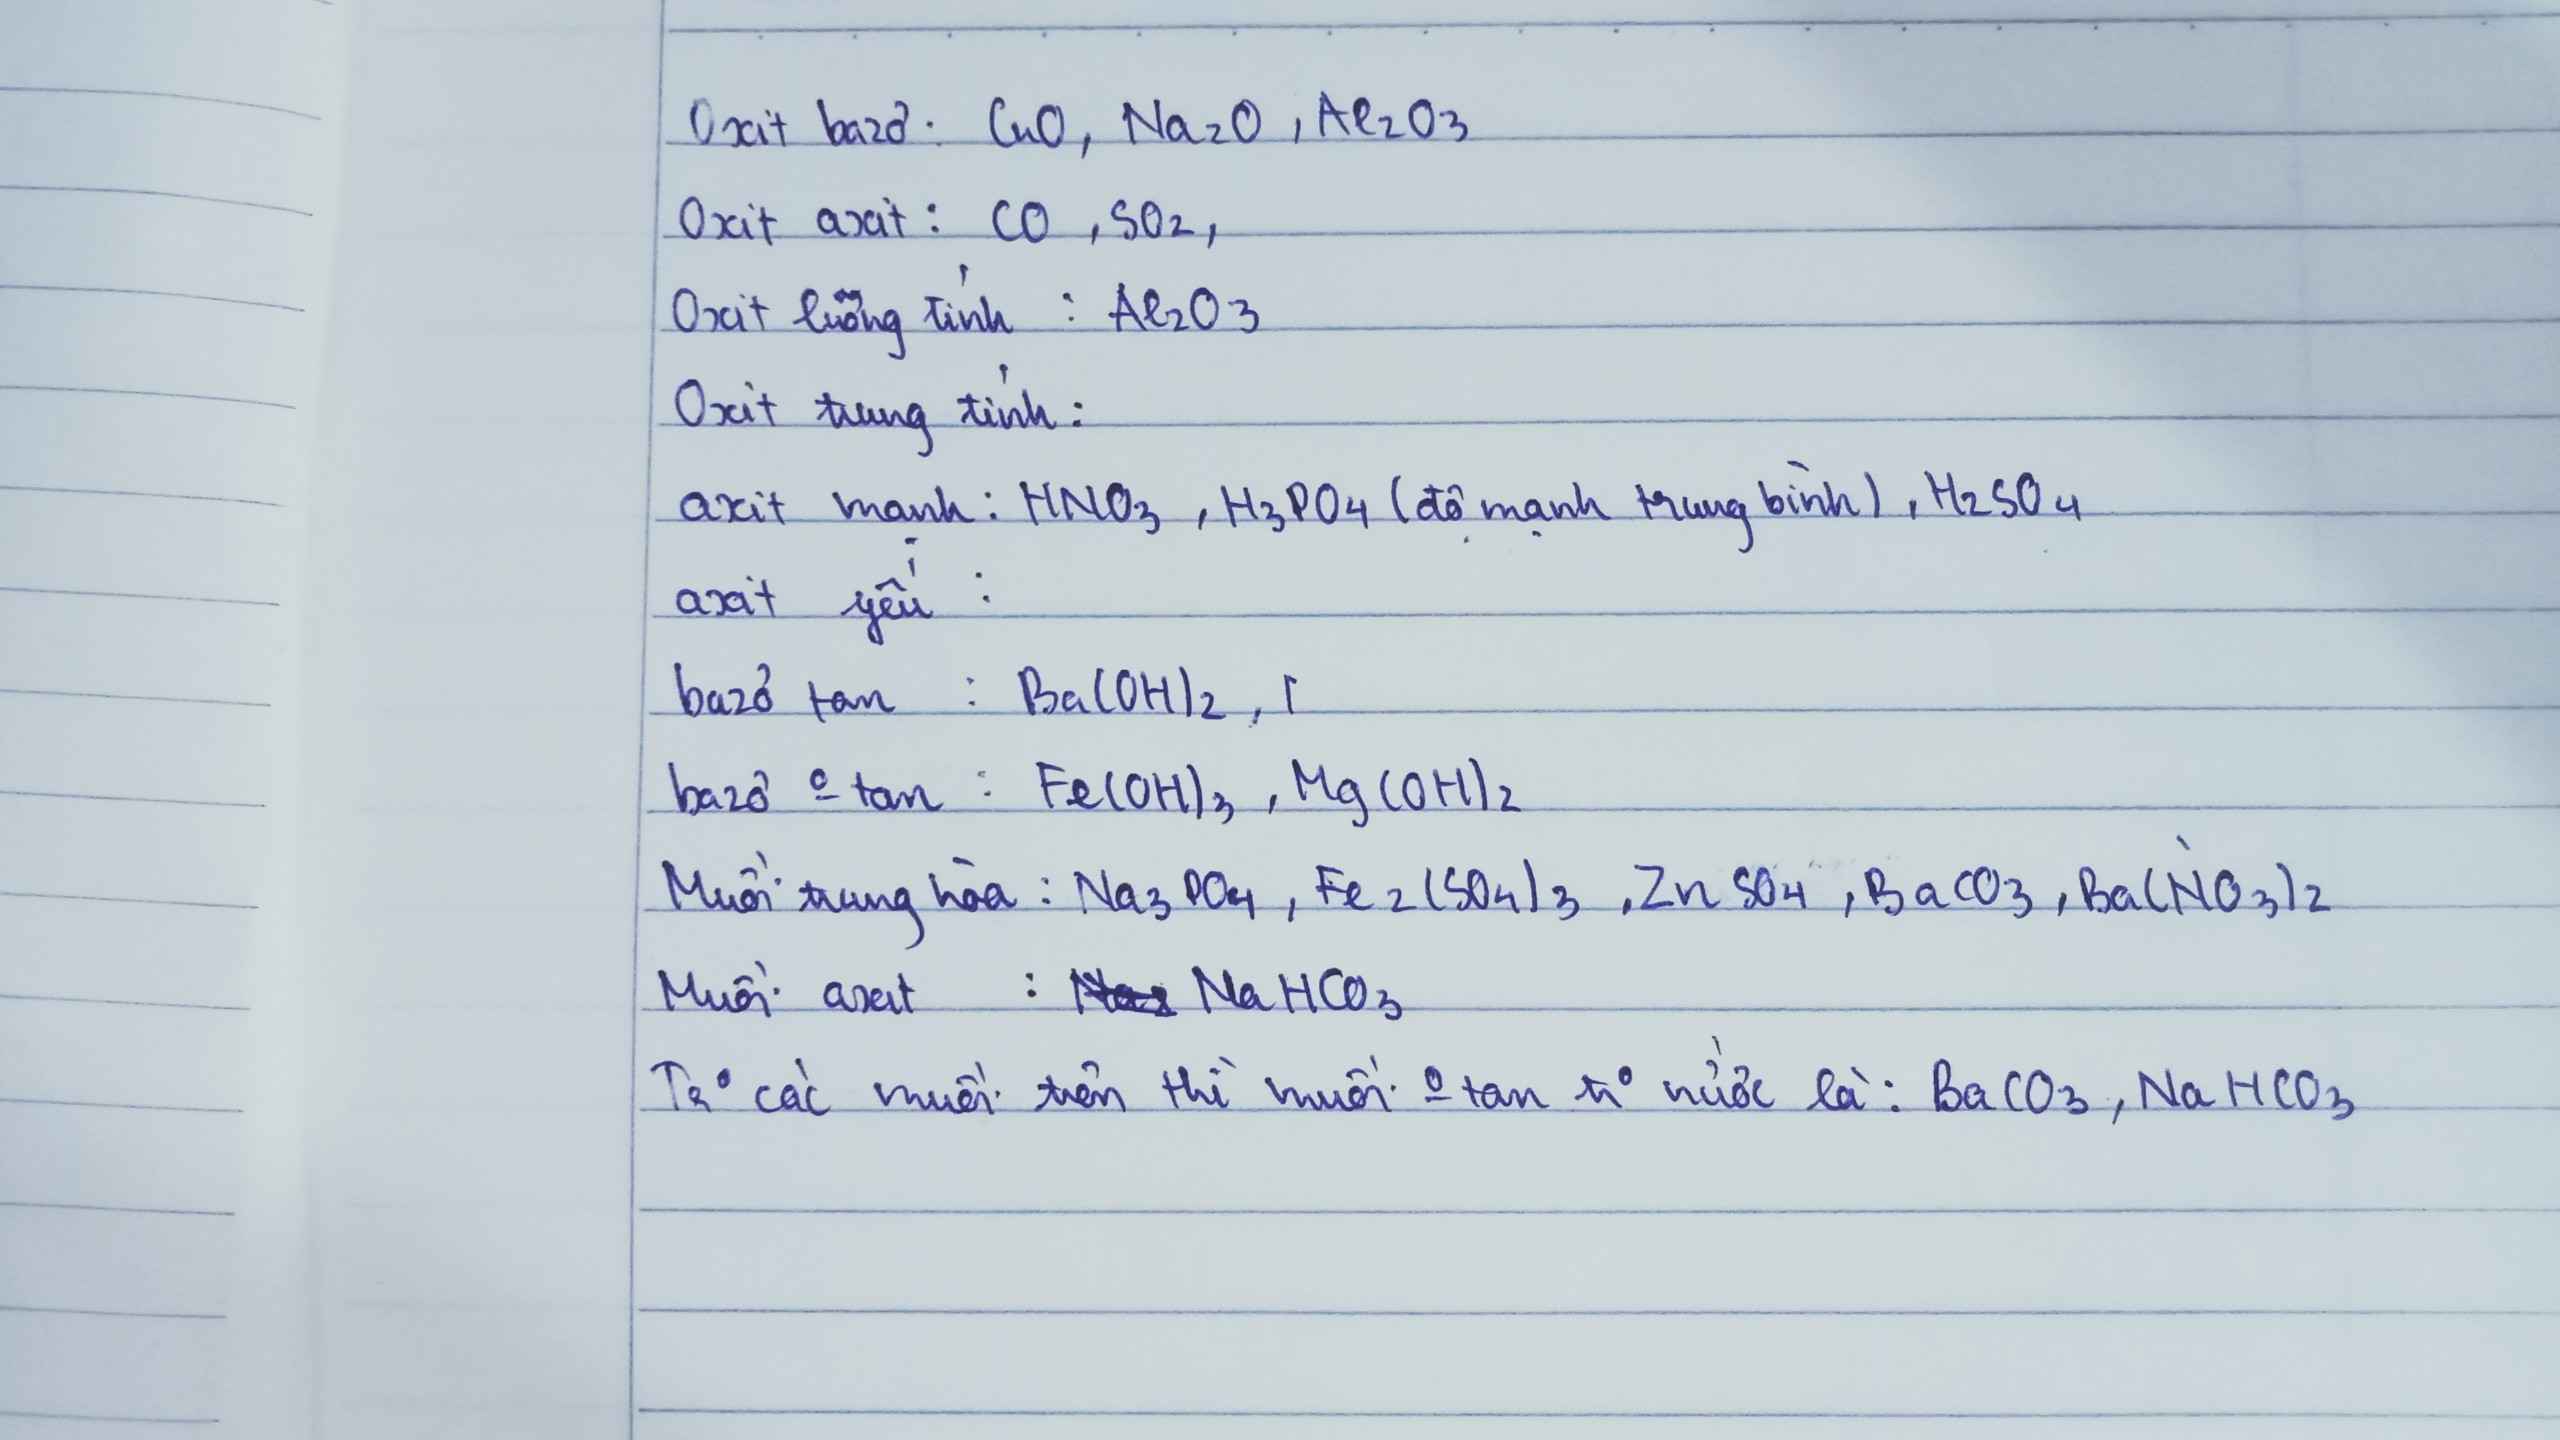 Oxit bazơ: CuO, Na2O, Al2O3
Oxit axit: CO, SO2,
Oxit lưỡng tính: Al2O3
Oxit trung tính:
axit mạnh: HNO3, H3PO4 (độ mạnh trung bình), H2SO4
axit yếu:
bazơ tan: Ba(OH)2,
bazơ º tan: Fe(OH)3, Mg(OH)2
Muối trung hòa: Na3PO4, Fe2(SO4)3, ZnSO4, BaCO3, Ba(NO3)2
Muối axit: NaHCO3
Trº các muối trên thì muối º tan trº nước là: BaCO3, NaHCO3